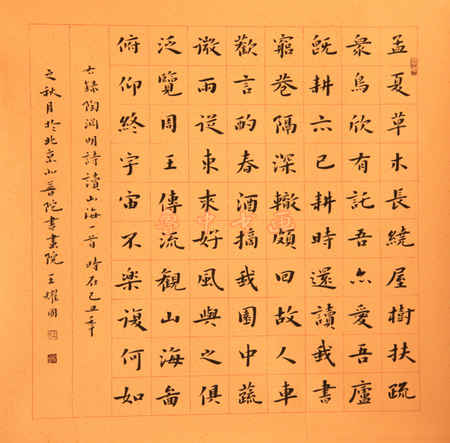 孟夏草木長繞屋樹扶疏
衆鳥欣有託吾亦愛吾廬
既耕亦已耕時還讀我書
窮巷隔深轍頗回故人車
歡言酌春酒摘我園中蔬
微雨從東來好風與之俱
泛覽周王傳流觀山海圖
俯仰終宇宙不樂復何如
錄陶淵明詩讀山海一首 時在己丑年
之秋月於北京善院書畫院 王耀